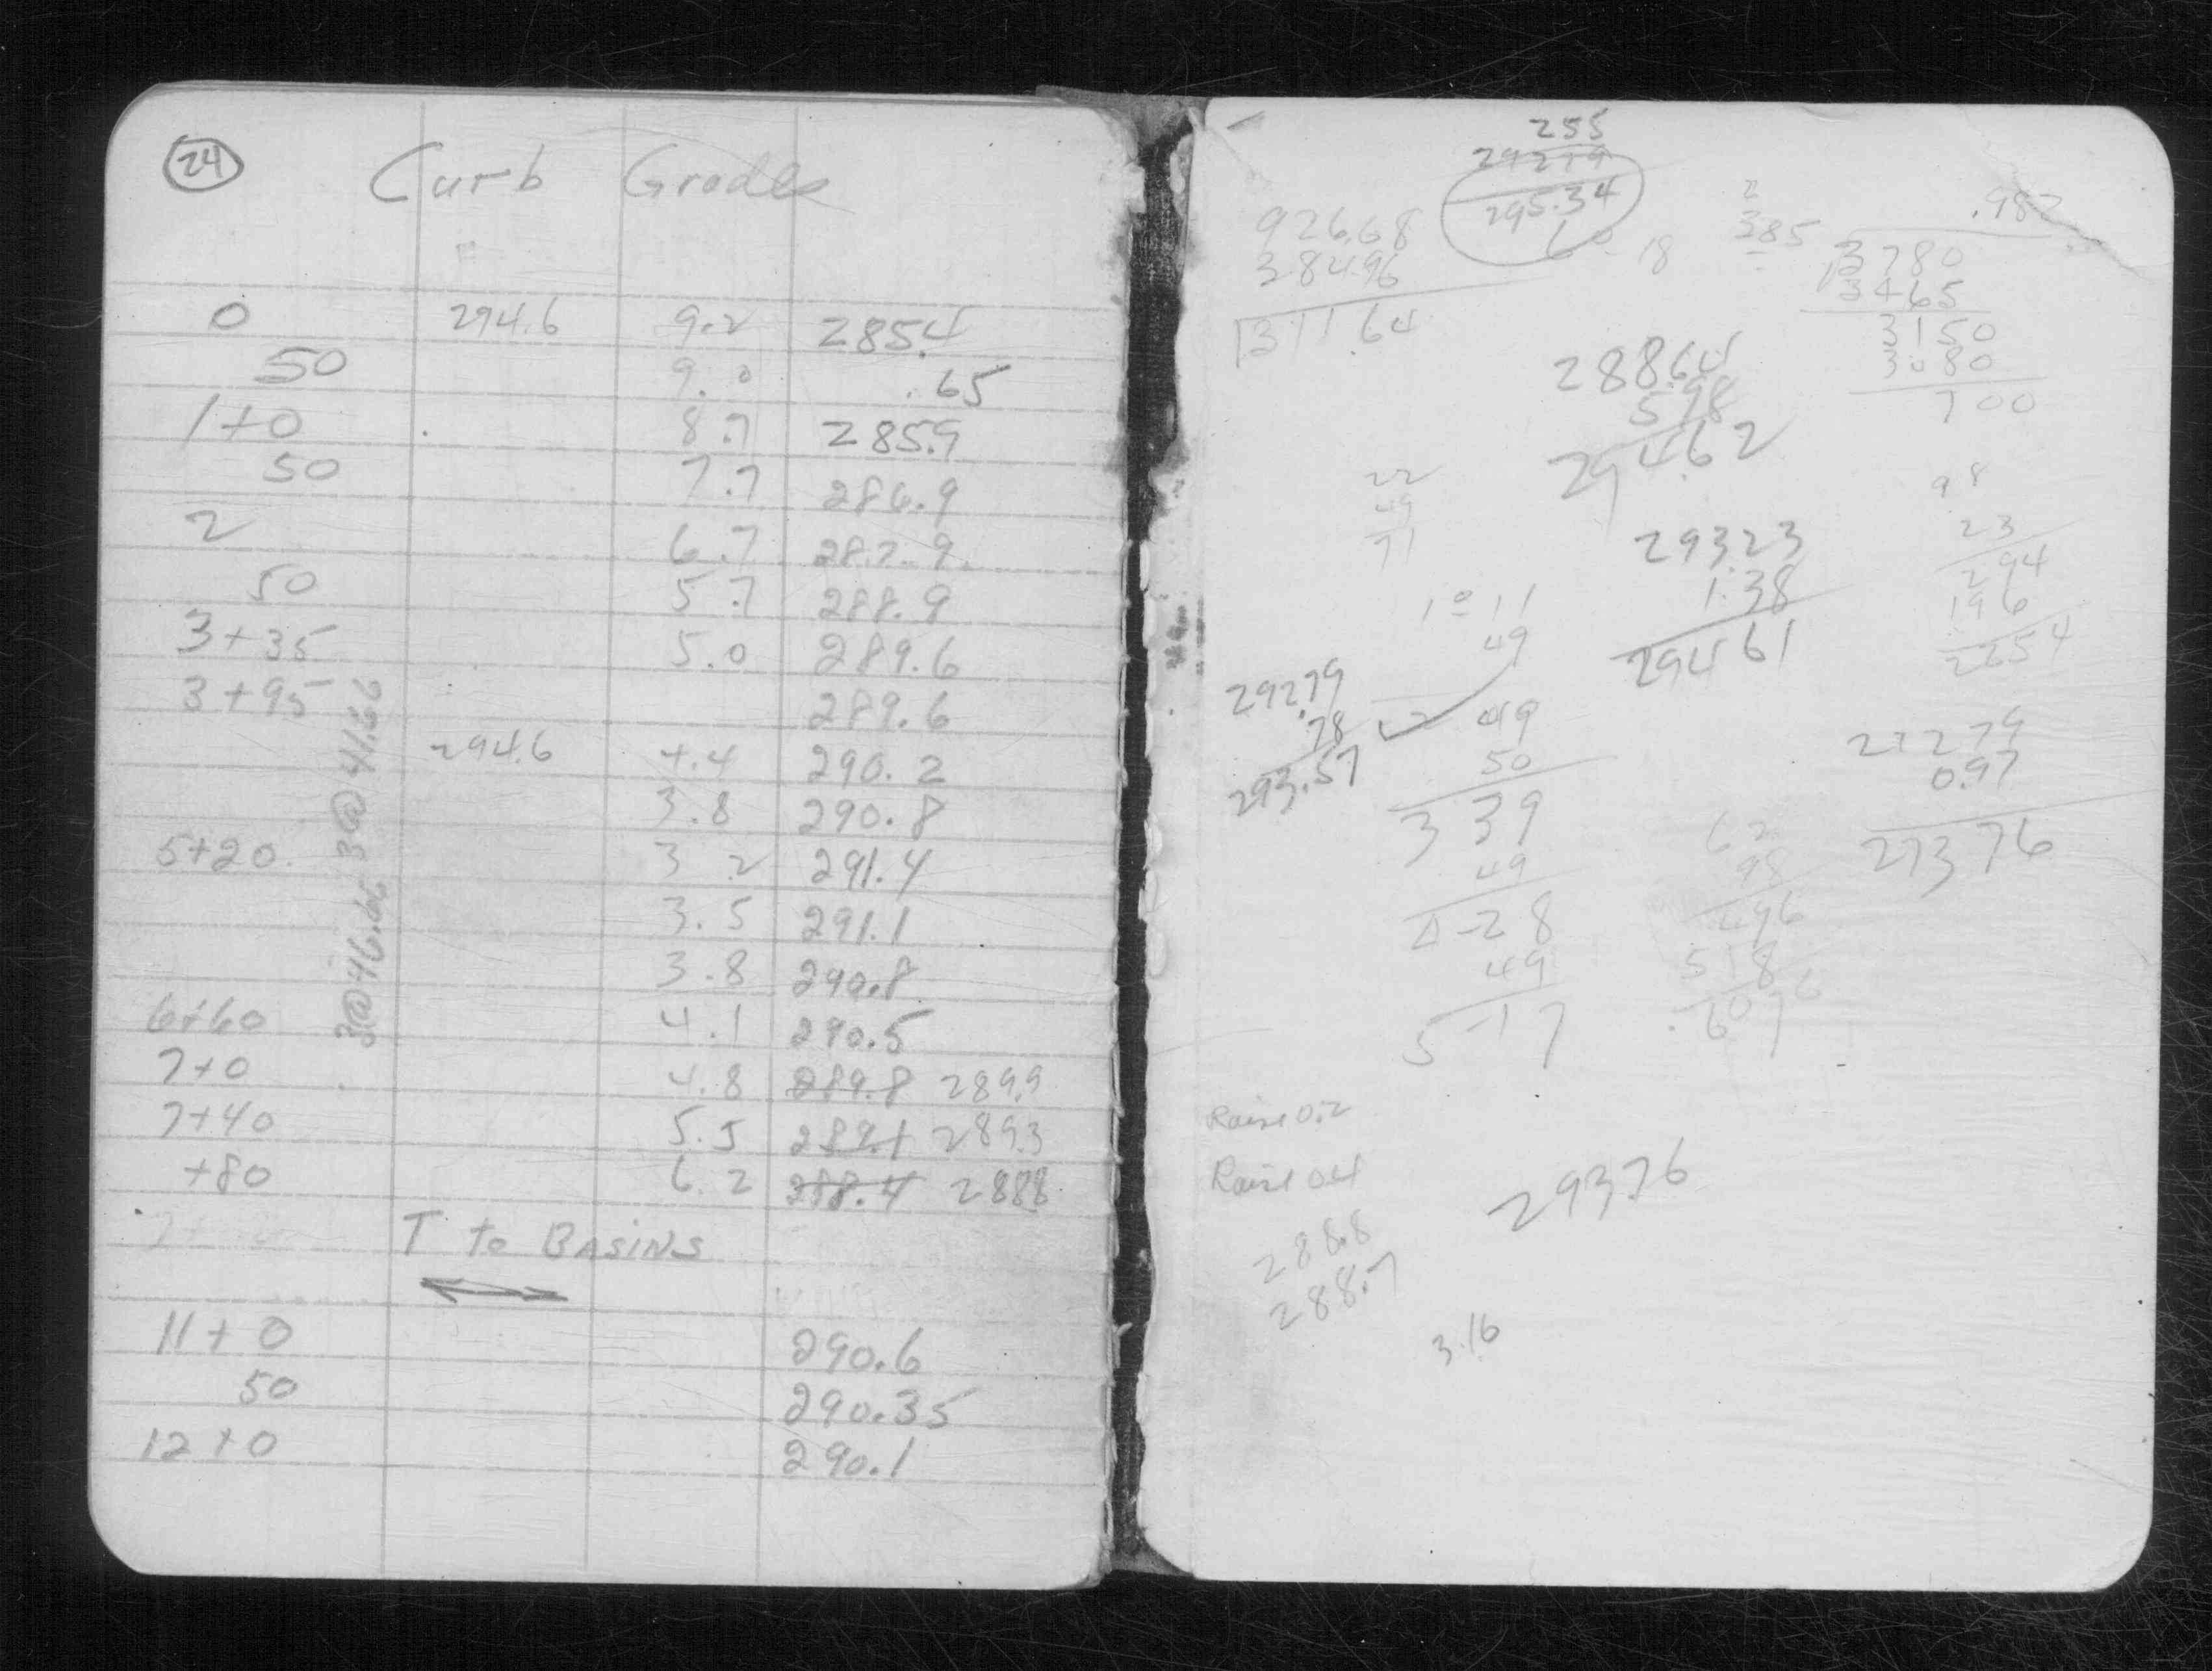 24
Curb Grades
0 294.6 9.2 285.4
50 9.0 .65
1+0 8.7 285.9
50 7.7 286.9
2 6.7 287.9
50 5.7 288.9
3+35 5.0 289.6
3+95 289.6
294.6 4.4 290.2
3.8 290.8
5+20 3.2 291.4
3.5 291.1
3.8 290.8
6+60 4.1 290.5
7+0 4.8 289.8 289.9
7+40 5.5 289.1 289.3
+80 6.2 288.4 288.8
3@46.66 3@41.66
T to BASINS
11+0 290.6
50 290.35
12+0 290.1
255
29279
295.34
926.68
384.96
1311.64
18
385
.982
3780
3465
3150
3080
700
288.64
5.98
294.62
22
49
71
98
23
294
196
2254
293.23
1.38
294.61
1-11
49
49
50
3 39
49
4-28
49
5-17
292.79
.78
293.57
27279
0.97
27376
62
98
496
518
.6076
Raise 0.2
Raise 0.4
293.76
288.8
288.7
3.16